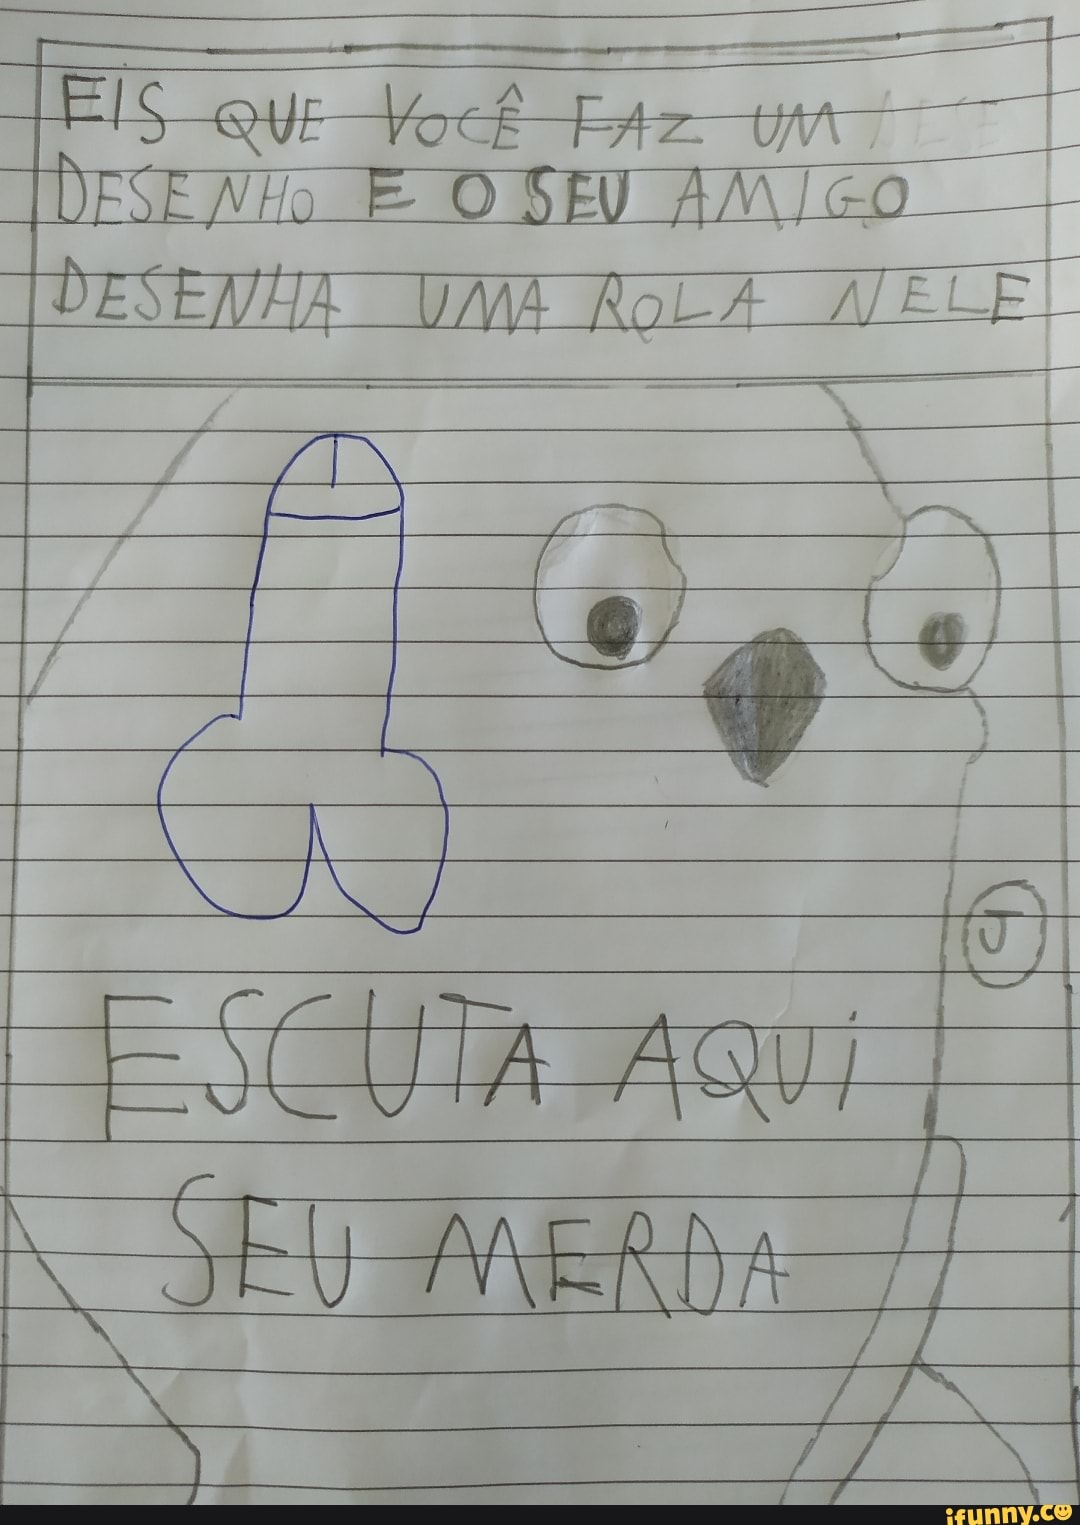 EIS QUE VOCÊ FAZ UM
DESENHO E O SEU AMIGO
DESENHA UMA ROLA NELE
J
ESCUTA AQUi
SEU MERDA
ifunny.co